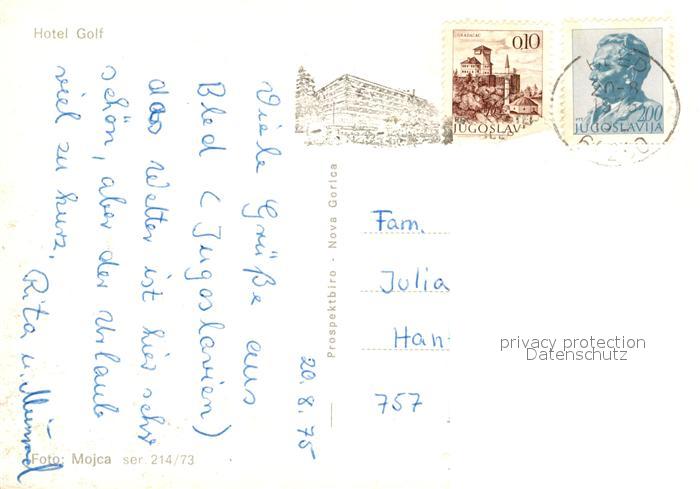 Hotel Golf
GRADAČAC
0,10
JUGOSLAVIJA
2,00
JUGOSLAVIJA
20.8.75
Viele Grüße aus
Bled (Jugoslavien)
das Wetter ist hier sehr
schön, aber der Urlaub
viel zu kurz.
Rita u.
Prospektbiro - Nova Gorica
Fam.
Julia
Han
757
privacy protection
Datenschutz
Foto: Mojca ser. 214/73